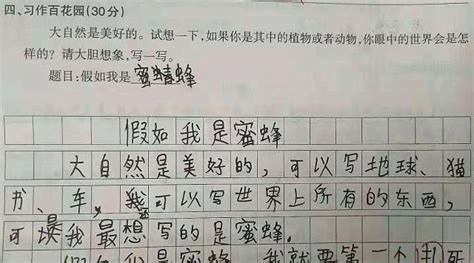 四、习作百花园(30分)
大自然是美好的。试想一下,如果你是其中的植物或者动物,你眼中的世界会是怎
样的?请大胆想象,写一写。
题目:假如我是蜜蜂
假如我是蜜蜂
大自然是美好的,可以写地球、猫
书、车,我还可以写世界上所有的东西,
可是我最想写的是蜜蜂。
是蜜蜂,我就要第一个